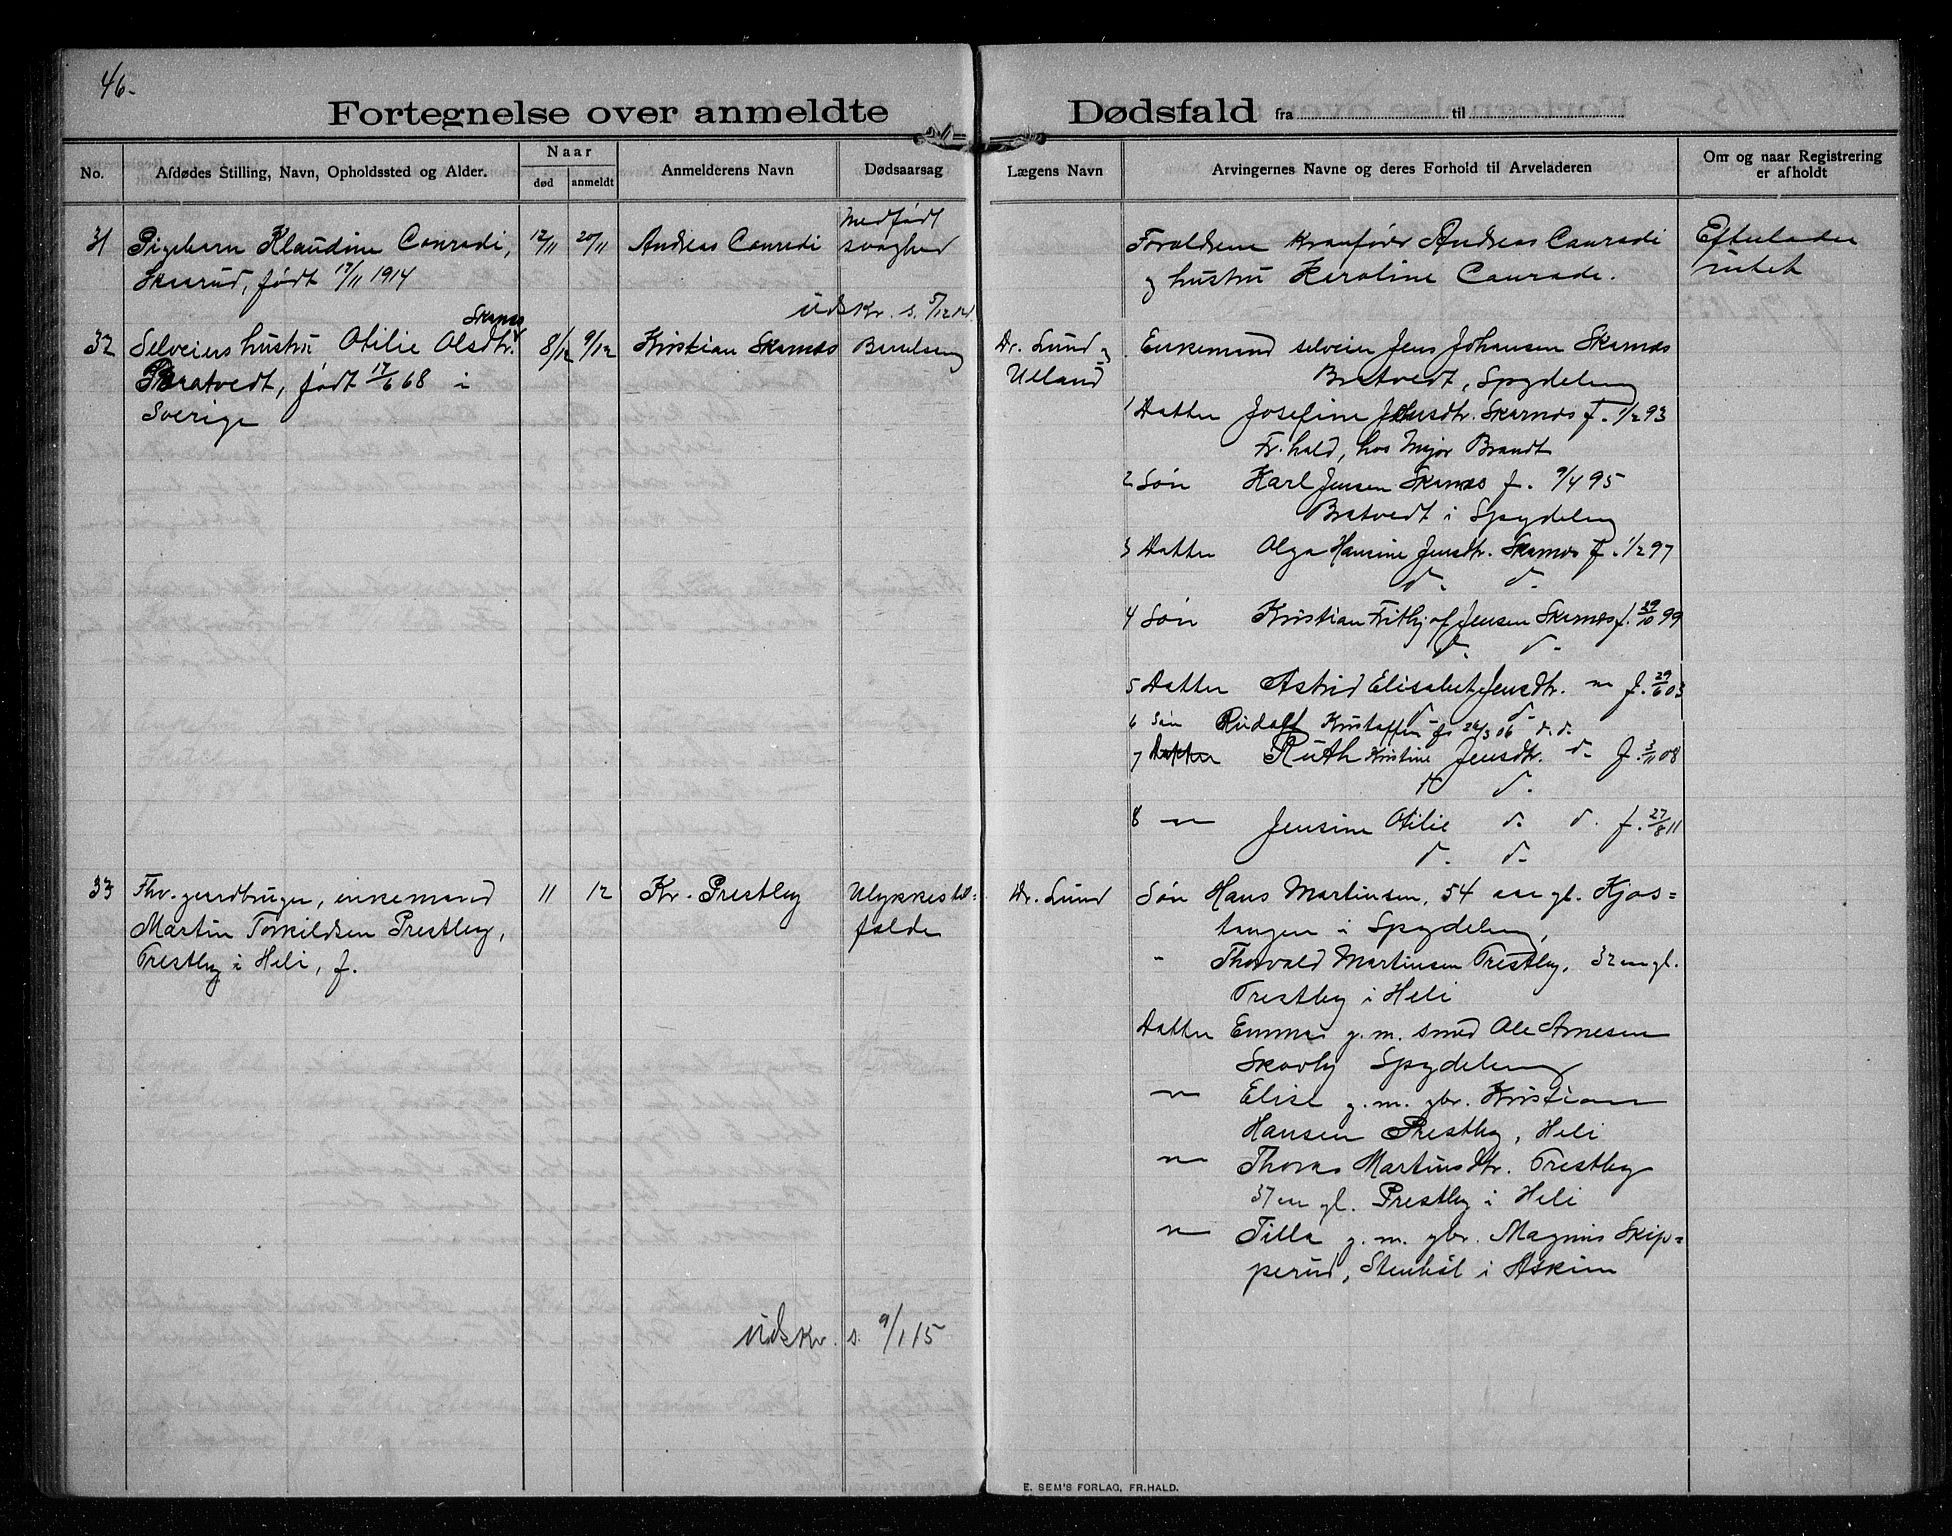 46.
Fortegnelse over anmeldte Dødsfald fra til
No.
Afdødes Stilling, Navn, Opholdssted og Alder.
Naar
død
anmeldt
Anmelderens Navn
Dødsaarsag
Lægens Navn
Arvingernes Navne og deres Forhold til Arveladeren
Om og naar Registrering
er afholdt
31
Pigebarn Klaudine Conradi,
Skaarud, født 17/11 1914
12/11
20/11
Andreas Conradi
Medfødt
svaghed
Forældrene Andreas Conradi
og hustru Karoline Conradi.
Efterlader
intet
udskr. s. 5/12 14.
32
Selveiers hustru Otilie Olsdtr. Skarnes
Bratvedt, født 17/6 68 i
Sverige
8/12
9/12
Kristian Skarnes
Dr. Lund og
Ulland
Enkemand selveier Jens Johansen Skarnes
Bratvedt, Spydeberg
1 Datter Josefine Jensdtr. Skarnes f. 1/2 93
Fr.hald, hos Major Brandt
2 Søn Karl Jensen Skarnes f. 9/4 95
Bratvedt i Spydeberg
3 Datter Olga Hansine Jensdtr. Skarnes f. 1/2 97
d. d.
4 Søn Kristian Fritjof Jensen Skarnes f. 29/10 99
d. d.
5 Datter Astrid Elisabet Jensdtr. — f. 29/6 03
d. d.
6 Søn Rudolf Kristoffer f. 26/3 06 d. d.
7 Datter Ruth Kristine Jensdtr. d. f. 3/11 08
d. d.
8 — Jensine Otilie d. d. f. 27/8 11
d. d.
33
Fhv. gaardbruger, enkemand
Martin Torkildsen Prestby,
Prestby i Heli, f.
11
12
Kr. Prestby
Ulykkestil-
fælde
Dr. Lund
Søn Hans Martinsen, 54 aar gl. Kjos-
tangen i Spydeberg,
" Thorvald Martinsen Prestby, 32 aar gl.
Prestby i Heli
Datter Emma g. m. smed Ole Arnesen
Skovby Spydeberg
— Elise g. m. gbr. Kristian
Hansen Prestby, Heli
— Thora Martinsdtr. Prestby
37 aar gl. Prestby i Heli
— Tilla g. m. gbr. Magnus Skip-
perud, Stenbøl i Askim
udskr. s. 9/1 15
E. SEM'S FORLAG, FR.HALD.